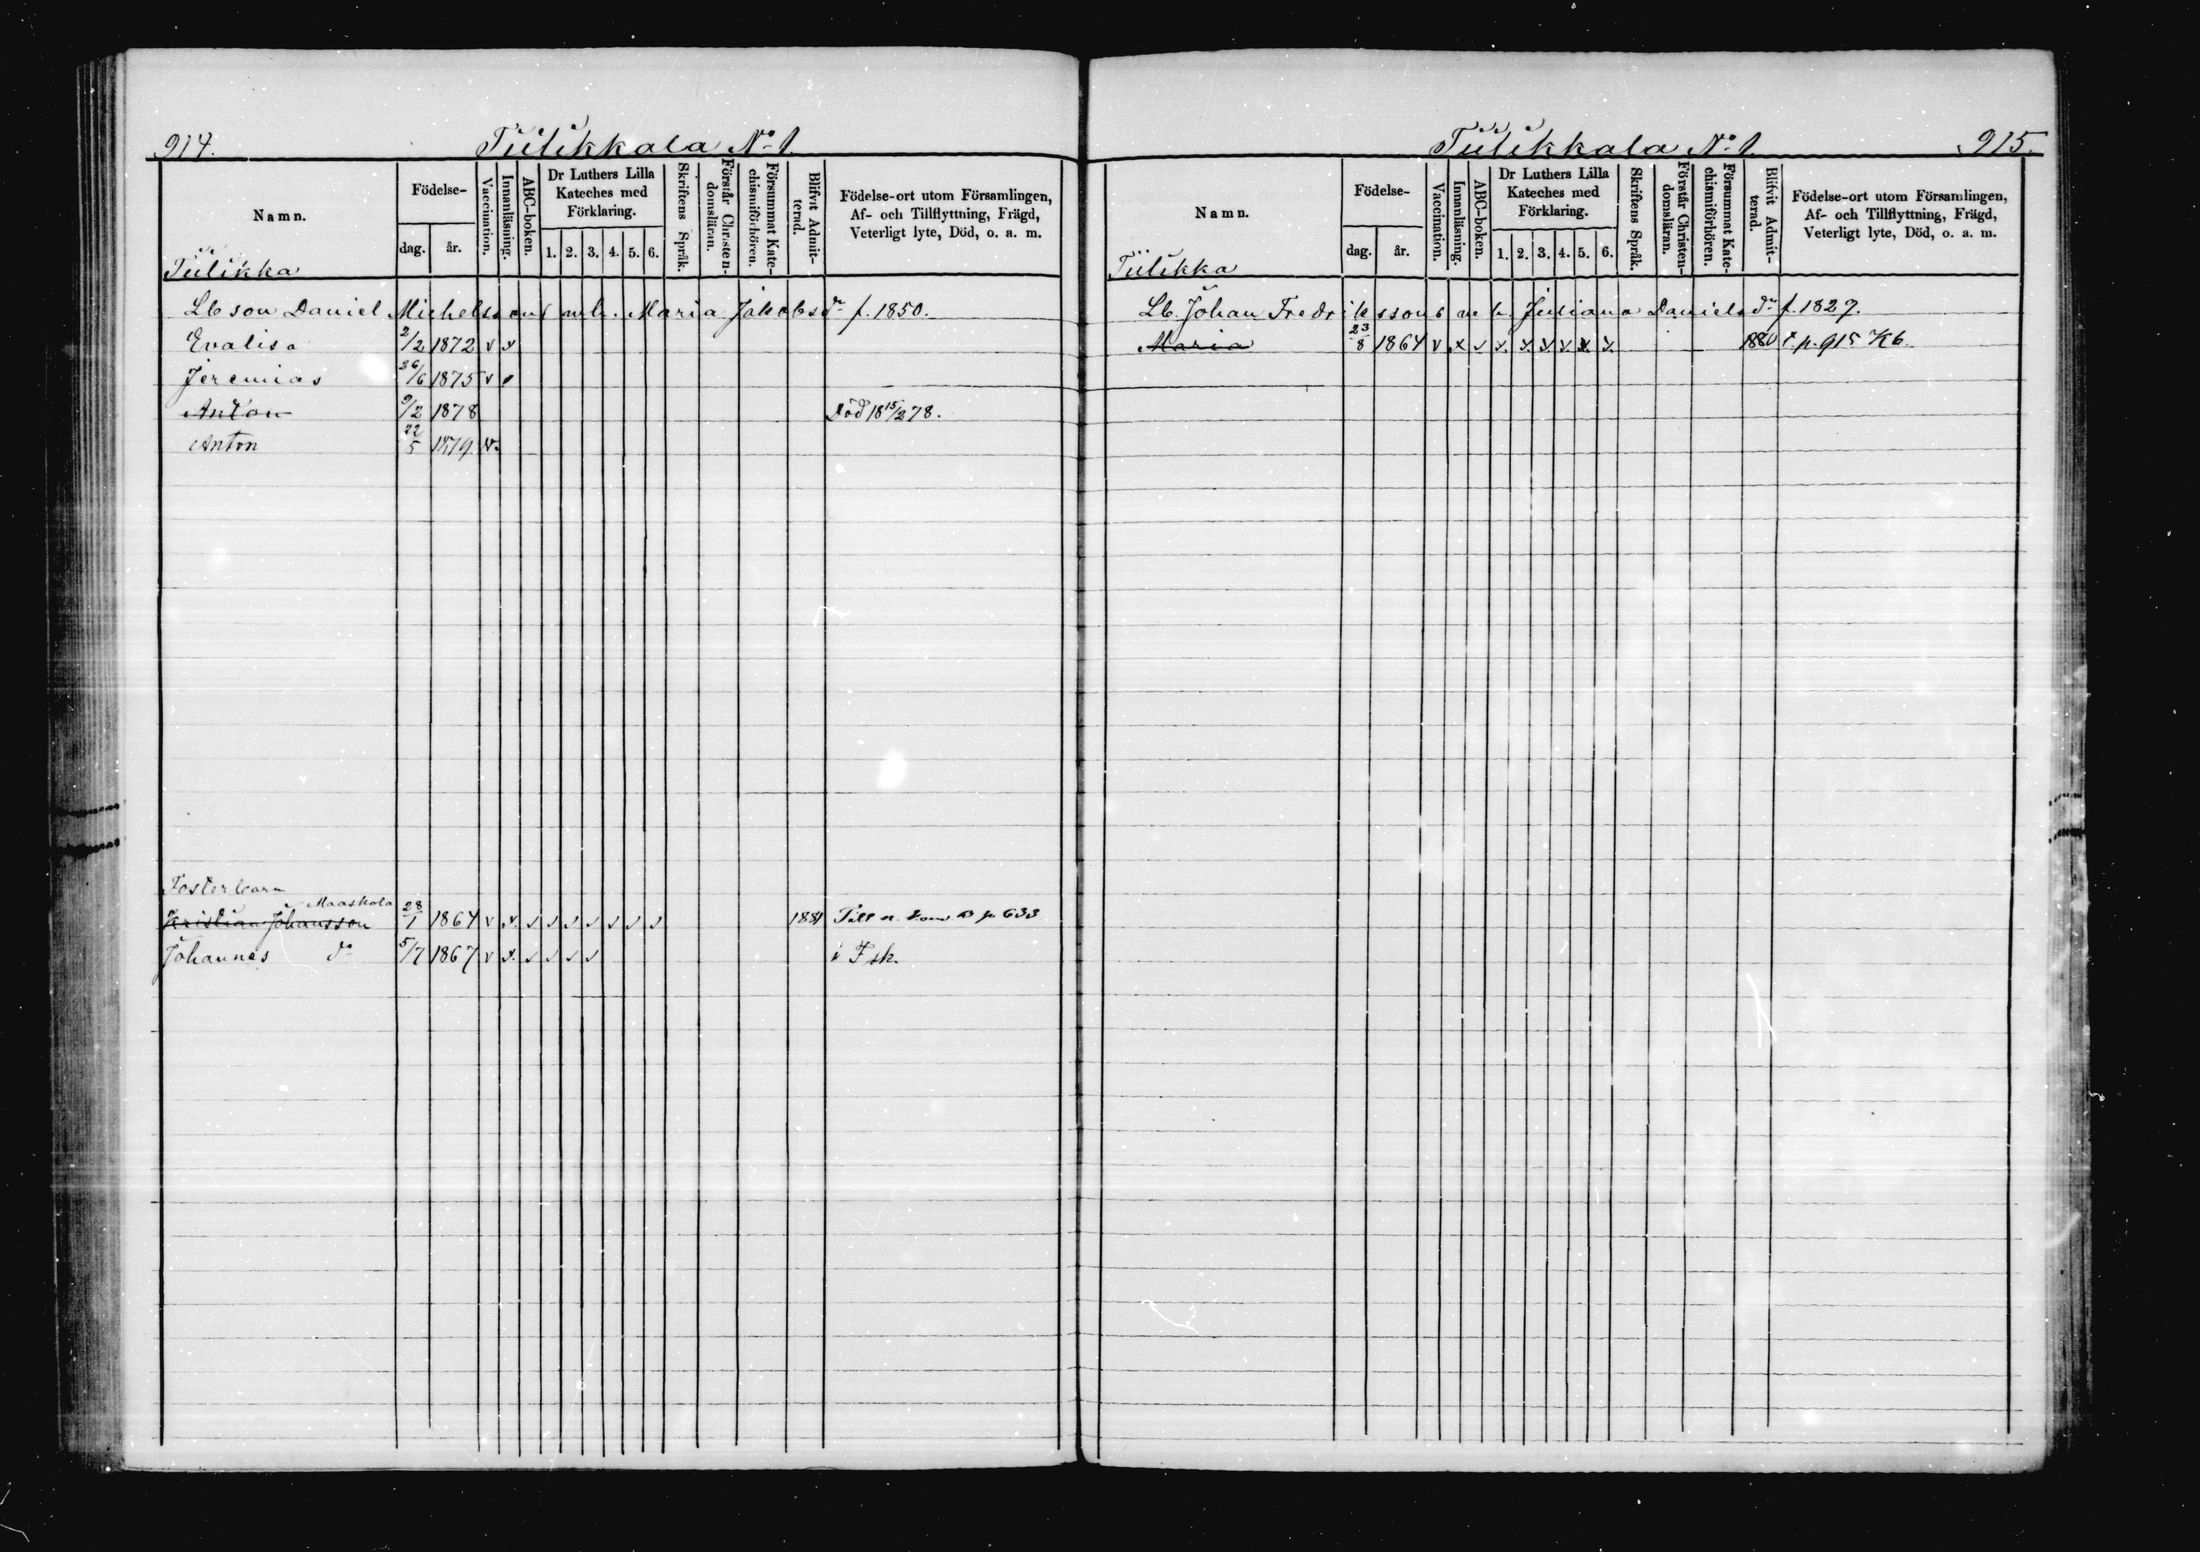 914. Tiilikkala No 1.
Namn. Födelse- dag. år. Vaccination. Innanläsning. ABC-boken. Dr Luthers Lilla Kateches med Förklaring. 1. 2. 3. 4. 5. 6. Skriftens Språk. Förstår Christendomsläran. Försummat Katechismiförhören. Blifvit Admitterad. Födelse-ort utom Församlingen, Af- och Tillflyttning, Frägd, Veterligt lyte, Död, o. a. m.
Tiilikka
Lb son Daniel Michelssons m h. Maria Jakobs dr f. 1850.
Evalisa 2/2 1872 v x
Jeremias 26/6 1875 v
Anton 9/2 1878 Död 18 15/2 78.
Anton 22/5 1879 v.
Fosterbarn
Maaskola
Kristian Johansson 28/1 1864 v x. 1881 Till n. p. 633
Johannes do 5/7 1867 v x. i Fsk.
Tiilikkala No 1. 915.
Namn. Födelse- dag. år. Vaccination. Innanläsning. ABC-boken. Dr Luthers Lilla Kateches med Förklaring. 1. 2. 3. 4. 5. 6. Skriftens Språk. Förstår Christendomsläran. Försummat Katechismiförhören. Blifvit Admitterad. Födelse-ort utom Församlingen, Af- och Tillflyttning, Frägd, Veterligt lyte, Död, o. a. m.
Tiilikka
Lb. Johan Fredrikssons m h. Juliana Daniels dr f. 1827.
Maria 23/8 1864 v x 1880 t. p. 915 Kb.